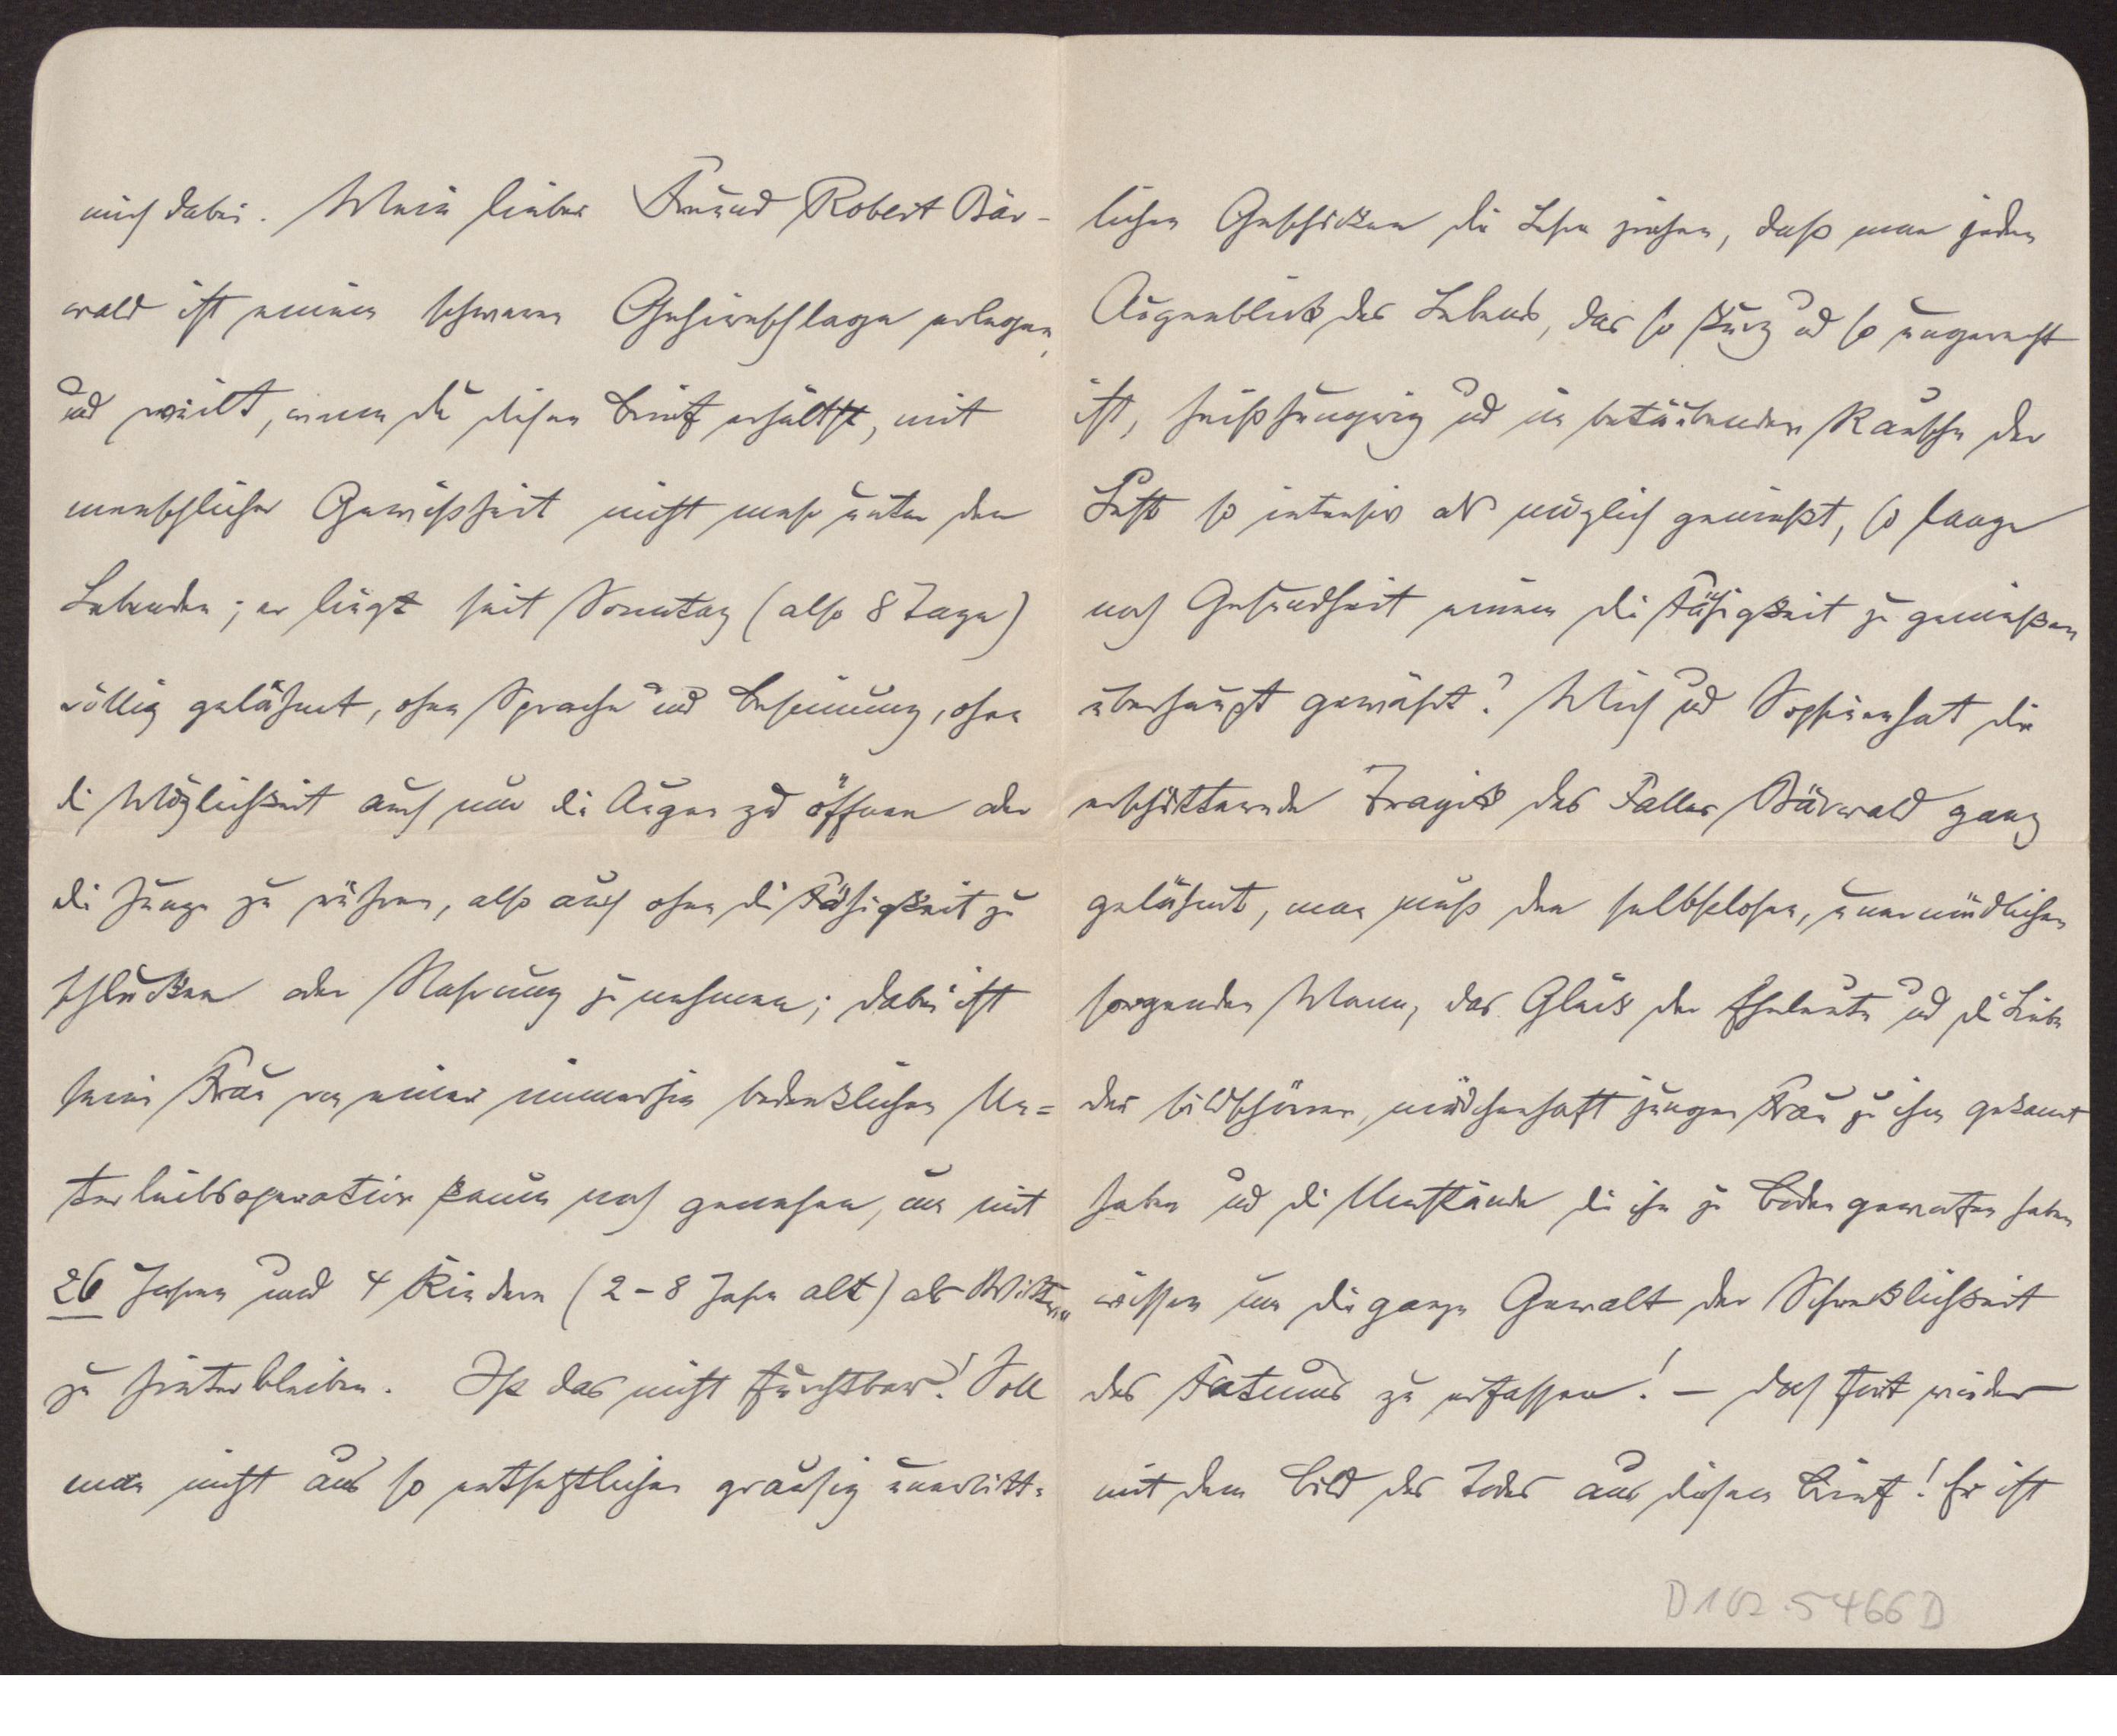 mich dabei. Mein lieber Freund Robert Bär-
wald ist einem schweren Gehirnschlage erlegen,
und weilt, wenn du diesen Brief erhältst, mit
menschlicher Gewißheit nicht mehr unter den
Lebenden; er liegt seit Sonntag (also 8 Tage)
völlig gelähmt, ohne Sprache und Besinnung, ohne
die Möglichkeit auch nur die Augen zu öffnen oder
die Zunge zu rühren, also auch ohne die Fähigkeit zu
schlucken oder Nahrung zu nehmen; dabei ist
seine Frau von einer immerhin bedenklichen Un=
terleibsoperation kaum noch genesen, um mit
26 Jahren und 4 Kindern (2-8 Jahre alt) als Wittwe
zu hinterbleiben. Ist das nicht furchtbar?! Soll
man nicht aus so entsetzlichen grausig unerbitt=
lichen Geschicken die Lehre ziehen, daß man jeden
Augenblick des Lebens, das so kurz und so ungerecht
ist, heißhungrig und im betäubenden Rausche der
Lust so intensiv als möglich genießt, so lange
noch Gesundheit einem die Fähigkeit zu genießen
überhaupt gewährt? Mich und Sophie hat die
erschütternde Tragik des Falles Bärwald ganz
gelähmt, man muß den selbstlosen, unermüdlichen
sorgenden Mann, das Glück der Eheleute und die Liebe
der bildschönen, mädchenhaft jungen Frau zu ihm gekannt
haben und die Umstände die ihn zu Boden geworfen haben
wissen um die ganze Gewalt der Schrecklichkeit
des Fatums zu erfassen! – Doch fort wieder
mit dem Bild des Todes aus diesem Brief! Er ist
D 102.5466 D